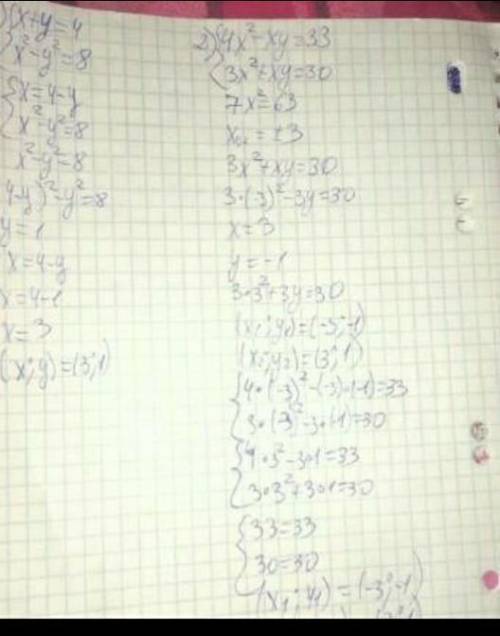 {x+y=4
x²-y²=8
{x=4-y
x²-y²=8
x²-y²=8
4-y)²-y²=8
y=1
x=4-y
x=4-1
x=3
(x;y)=(3;1)
2){4x²-xy=33
3x²+xy=30
7x²=63
x=±3
3x²+xy=30
3·(-3)²-3y=30
x=3
y=-1
3·3²+3y=30
(x₁;y₁)=(-3;-1)
(x₂;y₂)=(3;1)
{4·(-3)²-(-3)·(-1)=33
3·(-3)²-3·(-1)=30
{4·3²-3·1=33
3·3²+3·1=30
{33=33
30=30
(x₁;y₁)=(-3;-1)